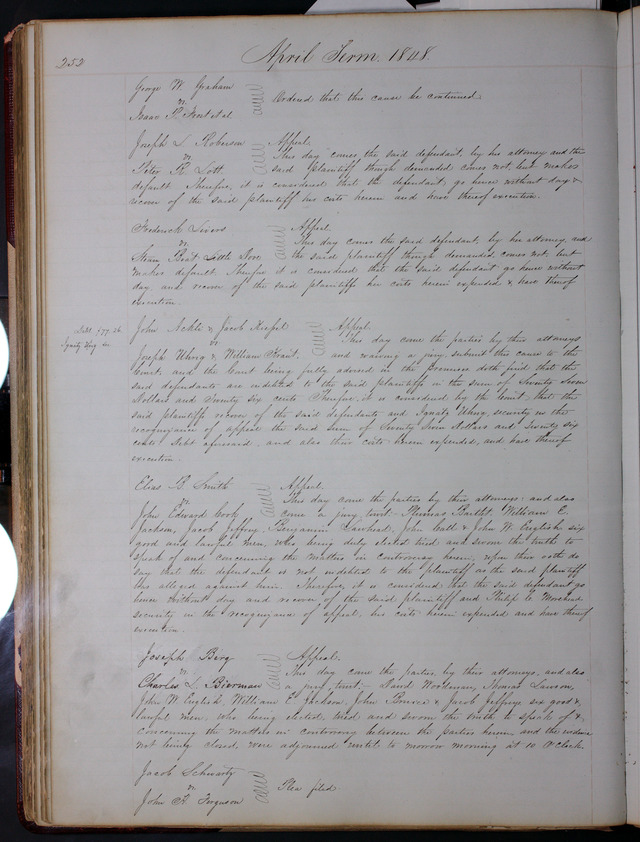 252
April Term 1848.
George W. Graham
vs
Isaac P.
Ordered that this cause be continued.
Joseph L. Roberson Appeal.
vs This day comes the said defendant, by his attorney and the
Peter R. Lott said Plaintiff though demanded comes not, but makes
default. Therefore, it is considered that the defendant, go hence without day &
recover of the said plaintiff his costs herein and have thereof execution.
Frederick Sivers Appeal
vs This day comes the said defendant, by his attorney, and
Steam Boat Little Dove the said plaintiff though demanded, comes not, but
makes default. Therefore it is considered that the said defendant go hence without
day and recover of the said plaintiff her costs herein expended & have thereof
execution
Debt. $77.26
Ignatz Uhrig
John & Jacob Appeal.
vs This day come the parties by their attorneys
Joseph Uhrig & William and waiving a jury submit this cause to the
Court, and the Court being fully advised in the Premises doth find that the
said defendants are indebted to the said plaintiffs in the sum of Seventy Seven
Dollars and Twenty six cents Therefore, it is considered by the Court, that the
said plaintiffs recover of the said defendants and Ignatz Uhrig, security in the
recognizance of appeal the said sum of Seventy Seven dollars and Twenty six
cents debt aforesaid, and also their costs herein expended, and have thereof
execution.
Elias B. Smith Appeal
vs This day come the parties by their attorneys: and also
John Edward Cook come a jury towit: Thomas William E.
Jackson, Jacob Jeffrey, Benjamin John Call & John W. English six
good and lawful men, who being duly elected tried and sworn the truth to
speak of and concerning the matters in controversy herein, upon their oath do
say that the defendant is not indebted to the plaintiff as the said plaintiff
has alleged against him. Therefore, it is considered that the said defendant go
hence without day and recover of the said plaintiff and Philip C. Morehead
security in the recognizance of appeal, his costs herein expended and have thereof
execution.
Joseph Berg Appeal.
vs This day come the parties, by their attorneys, and also
Charles L. Bierman a jury, towit: David Woodman, Thomas Lawson,
John W. English, William E. Jackson, John & Jacob Jeffrey six good &
lawful men, who being elected, tried and sworn the truth to speak of &
concerning the matters in controversy between the parties herein and the evidence
not being closed, were adjourned until to morrow morning at 10 O'clock.
Jacob Schwartz
vs Plea filed
John R. Ferguson